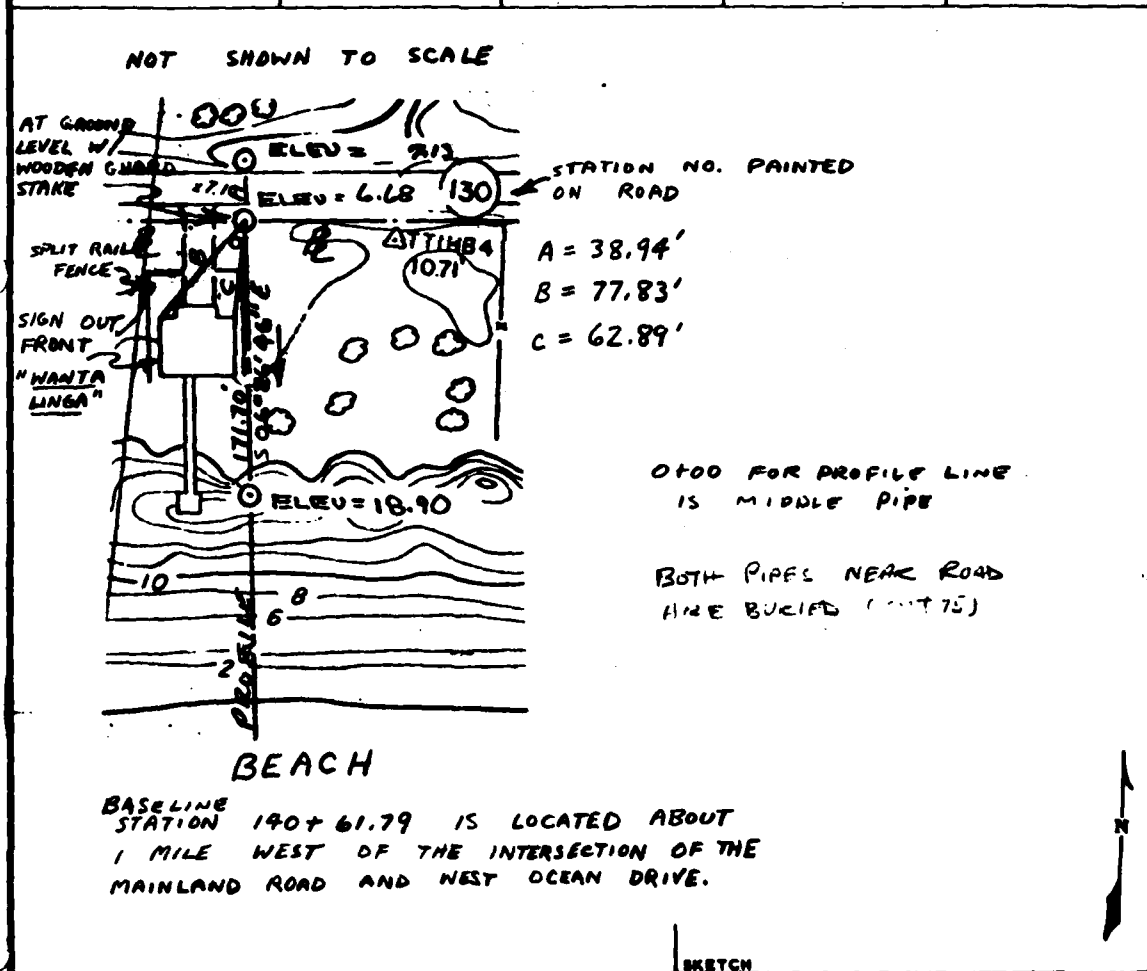 NOT SHOWN TO SCALE
AT GROUND
LEVEL W/
WOODEN GUARD
STAKE
ELEV =
ELEV = 6.68
130
STATION NO. PAINTED
ON ROAD
SPLIT RAIL
FENCE
TTIHB4
10.71
A = 38.94'
B = 77.83'
C = 62.89'
SIGN OUT
FRONT
"WANTA
LINGA"
B
C
171.70'
ELEV = 18.90
0+00 FOR PROFILE LINE
IS MIDDLE PIPE
BOTH PIPES NEAR ROAD
ARE BURIED
10
8
6
2
PROFILE
BEACH
BASELINE
STATION 140+61.79 IS LOCATED ABOUT
1 MILE WEST OF THE INTERSECTION OF THE
MAINLAND ROAD AND WEST OCEAN DRIVE.
N
SKETCH